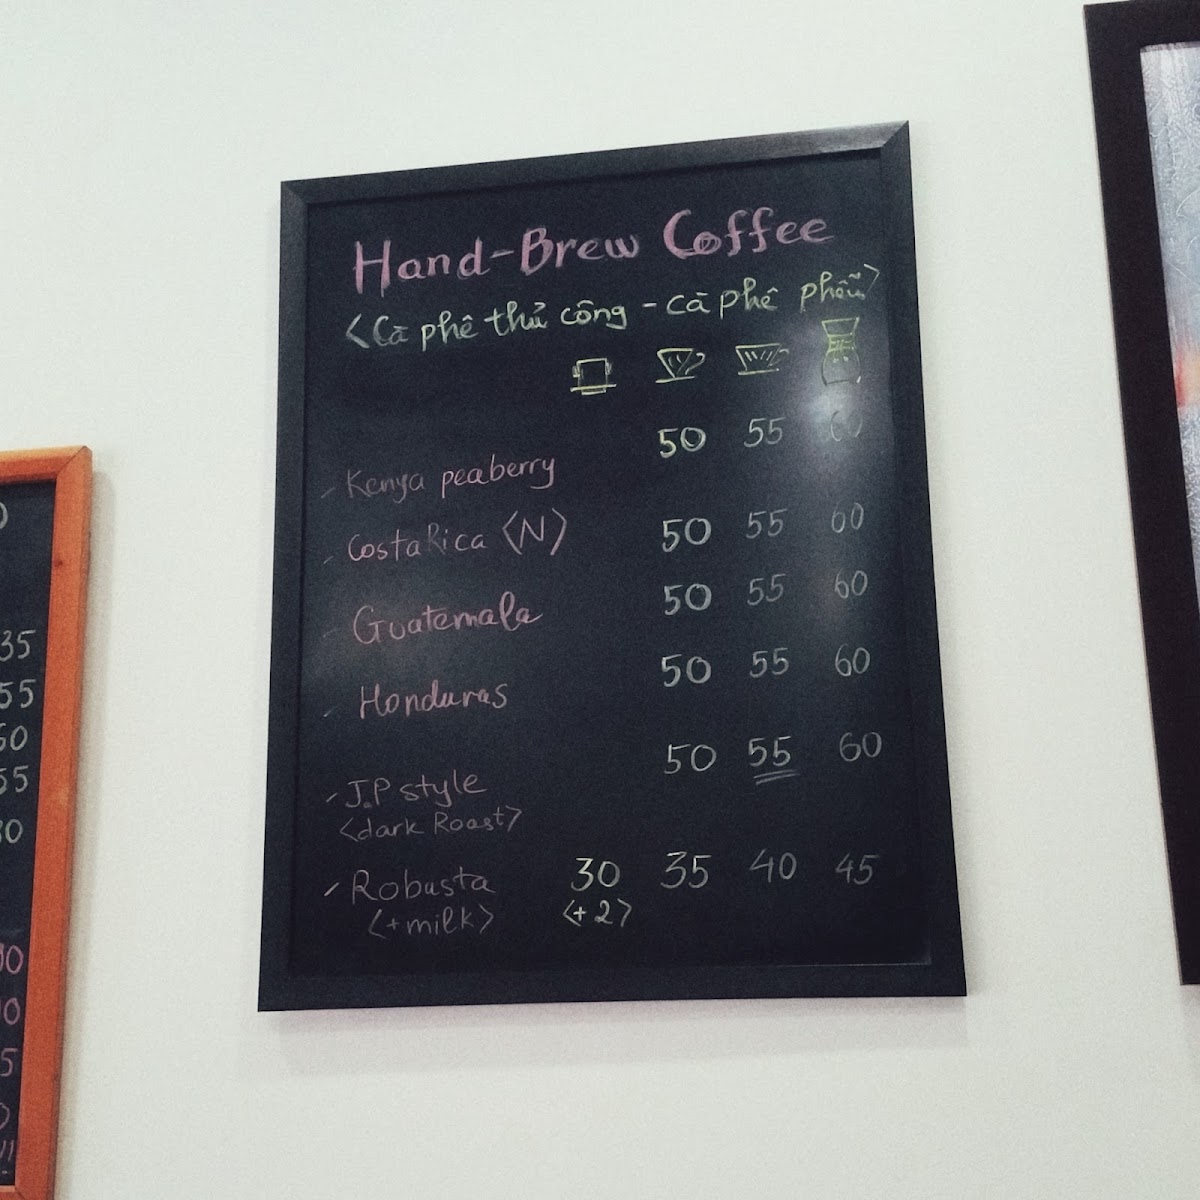 Hand-Brew Coffee
<Cà phê thủ công - cà phê phễu>
50 55 60
Kenya peaberry
CostaRica <N> 50 55 60
Guatemala 50 55 60
Honduras 50 55 60
50 55 60
J.P style
<dark Roast>
Robusta 30 35 40 45
<+milk> <+2>
35
55
55